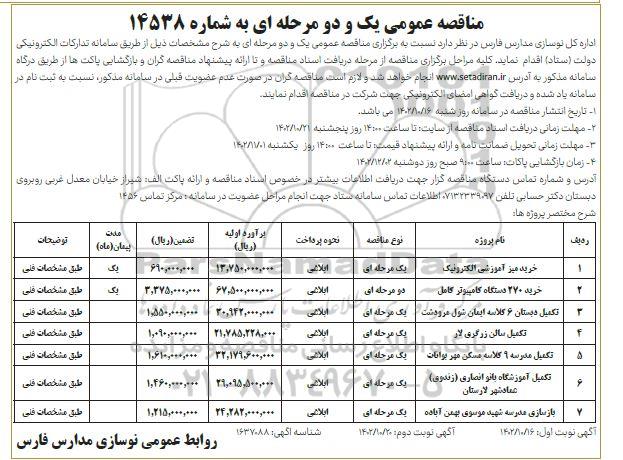 مناقصه عمومی یک و دو مرحله ای به شماره ۱۴۵۳۸
اداره کل نوسازی مدارس فارس در نظر دارد نسبت به برگزاری مناقصه عمومی یک و دو مرحله ای به شرح مشخصات ذیل از طریق سامانه تدارکات الکترونیکی
دولت (ستاد) اقدام نماید. کلیه مراحل برگزاری مناقصه از مرحله دریافت اسناد مناقصه و تا ارائه پیشنهاد مناقصه گران و بازگشایی پاکت ها از طریق درگاه
سامانه مذکور به آدرس www.setadiran.ir انجام خواهد شد و لازم است مناقصه گران در صورت عدم عضویت قبلی در سامانه مذکور، نسبت به ثبت نام در
سامانه یاد شده و دریافت گواهی امضای الکترونیکی جهت شرکت در مناقصه اقدام نمایند.
۱- تاریخ انتشار مناقصه در سامانه روز شنبه ۱۴۰۲/۱۰/۱۶ می باشد.
۲- مهلت زمانی دریافت اسناد مناقصه از سایت: تا ساعت ۱۴:۰۰ روز پنجشنبه ۱۴۰۲/۱۰/۲۱
۳- مهلت زمانی تحویل ضمانت نامه و ارائه پیشنهاد قیمت: تا ساعت ۱۴:۰۰ روز یکشنبه ۱۴۰۲/۱۱/۰۱
۴- زمان بازگشایی پاکات: ساعت ۹:۰۰ صبح روز دوشنبه ۱۴۰۲/۱۲/۰۲
آدرس و شماره تماس دستگاه مناقصه گزار جهت دریافت اطلاعات بیشتر در خصوص اسناد مناقصه و ارائه پاکت الف: شیراز خیابان معدل غربی روبروی
دبستان دکتر حسابی تلفن ۰۷۱۳۲۳۳۹۰۹۷ اطلاعات تماس سامانه ستاد جهت انجام مراحل عضویت در سامانه : مرکز تماس ۱۴۵۶
شرح مختصر پروژه ها:
ردیف نام پروژه نوع مناقصه نحوه پرداخت برآورد اولیه (ریال) تضمین(ریال) مدت پیمان(ماه) توضیحات
۱ خرید میز آموزشی الکترونیک یک مرحله ای ابلاغی ۱۳,۷۵۰,۰۰۰,۰۰۰ ۶۹۰,۰۰۰,۰۰۰ یک طبق مشخصات فنی
۲ خرید ۲۷۰ دستگاه کامپیوتر کامل دو مرحله ای ابلاغی ۶۷,۵۰۰,۰۰۰,۰۰۰ ۳,۳۷۵,۰۰۰,۰۰۰ یک طبق مشخصات فنی
۳ تکمیل دبستان ۶ کلاسه ایمان شول مرودشت یک مرحله ای ابلاغی ۳۰,۹۴۲,۰۰۰,۰۰۰ ۱,۵۵۰,۰۰۰,۰۰۰ طبق مشخصات فنی
۴ تکمیل سالن زرگری لار یک مرحله ای ابلاغی ۲۱,۷۸۵,۲۲۸,۰۰۰ ۱,۰۹۰,۰۰۰,۰۰۰ طبق مشخصات فنی
۵ تکمیل مدرسه ۹ کلاسه مسکن مهر بوانات یک مرحله ای ابلاغی ۳۲,۱۷۹,۶۰۰,۰۰۰ ۱,۶۱۰,۰۰۰,۰۰۰ طبق مشخصات فنی
۶ تکمیل آموزشگاه بانو انصاری (زندوی) عمادشهر لارستان یک مرحله ای ابلاغی ۲۹,۰۹۵,۵۰۰,۰۰۰ ۱,۴۶۰,۰۰۰,۰۰۰ طبق مشخصات فنی
۷ بازسازی مدرسه شهید موسوی بهمن آباده یک مرحله ای ابلاغی ۲۴,۲۸۲,۰۰۰,۰۰۰ ۱,۲۱۵,۰۰۰,۰۰۰ طبق مشخصات فنی
آگهی نوبت اول: ۱۴۰۲/۱۰/۱۶ آگهی نوبت دوم: ۱۴۰۲/۱۰/۲۰ شناسه آگهی: ۱۶۳۷۰۸۸
روابط عمومی نوسازی مدارس فارس
ParsNamadData
پایگاه اطلاع رسانی مناقصه و مزایده
۰۲۱-۸۸۳۴۹۶۷۰-۵